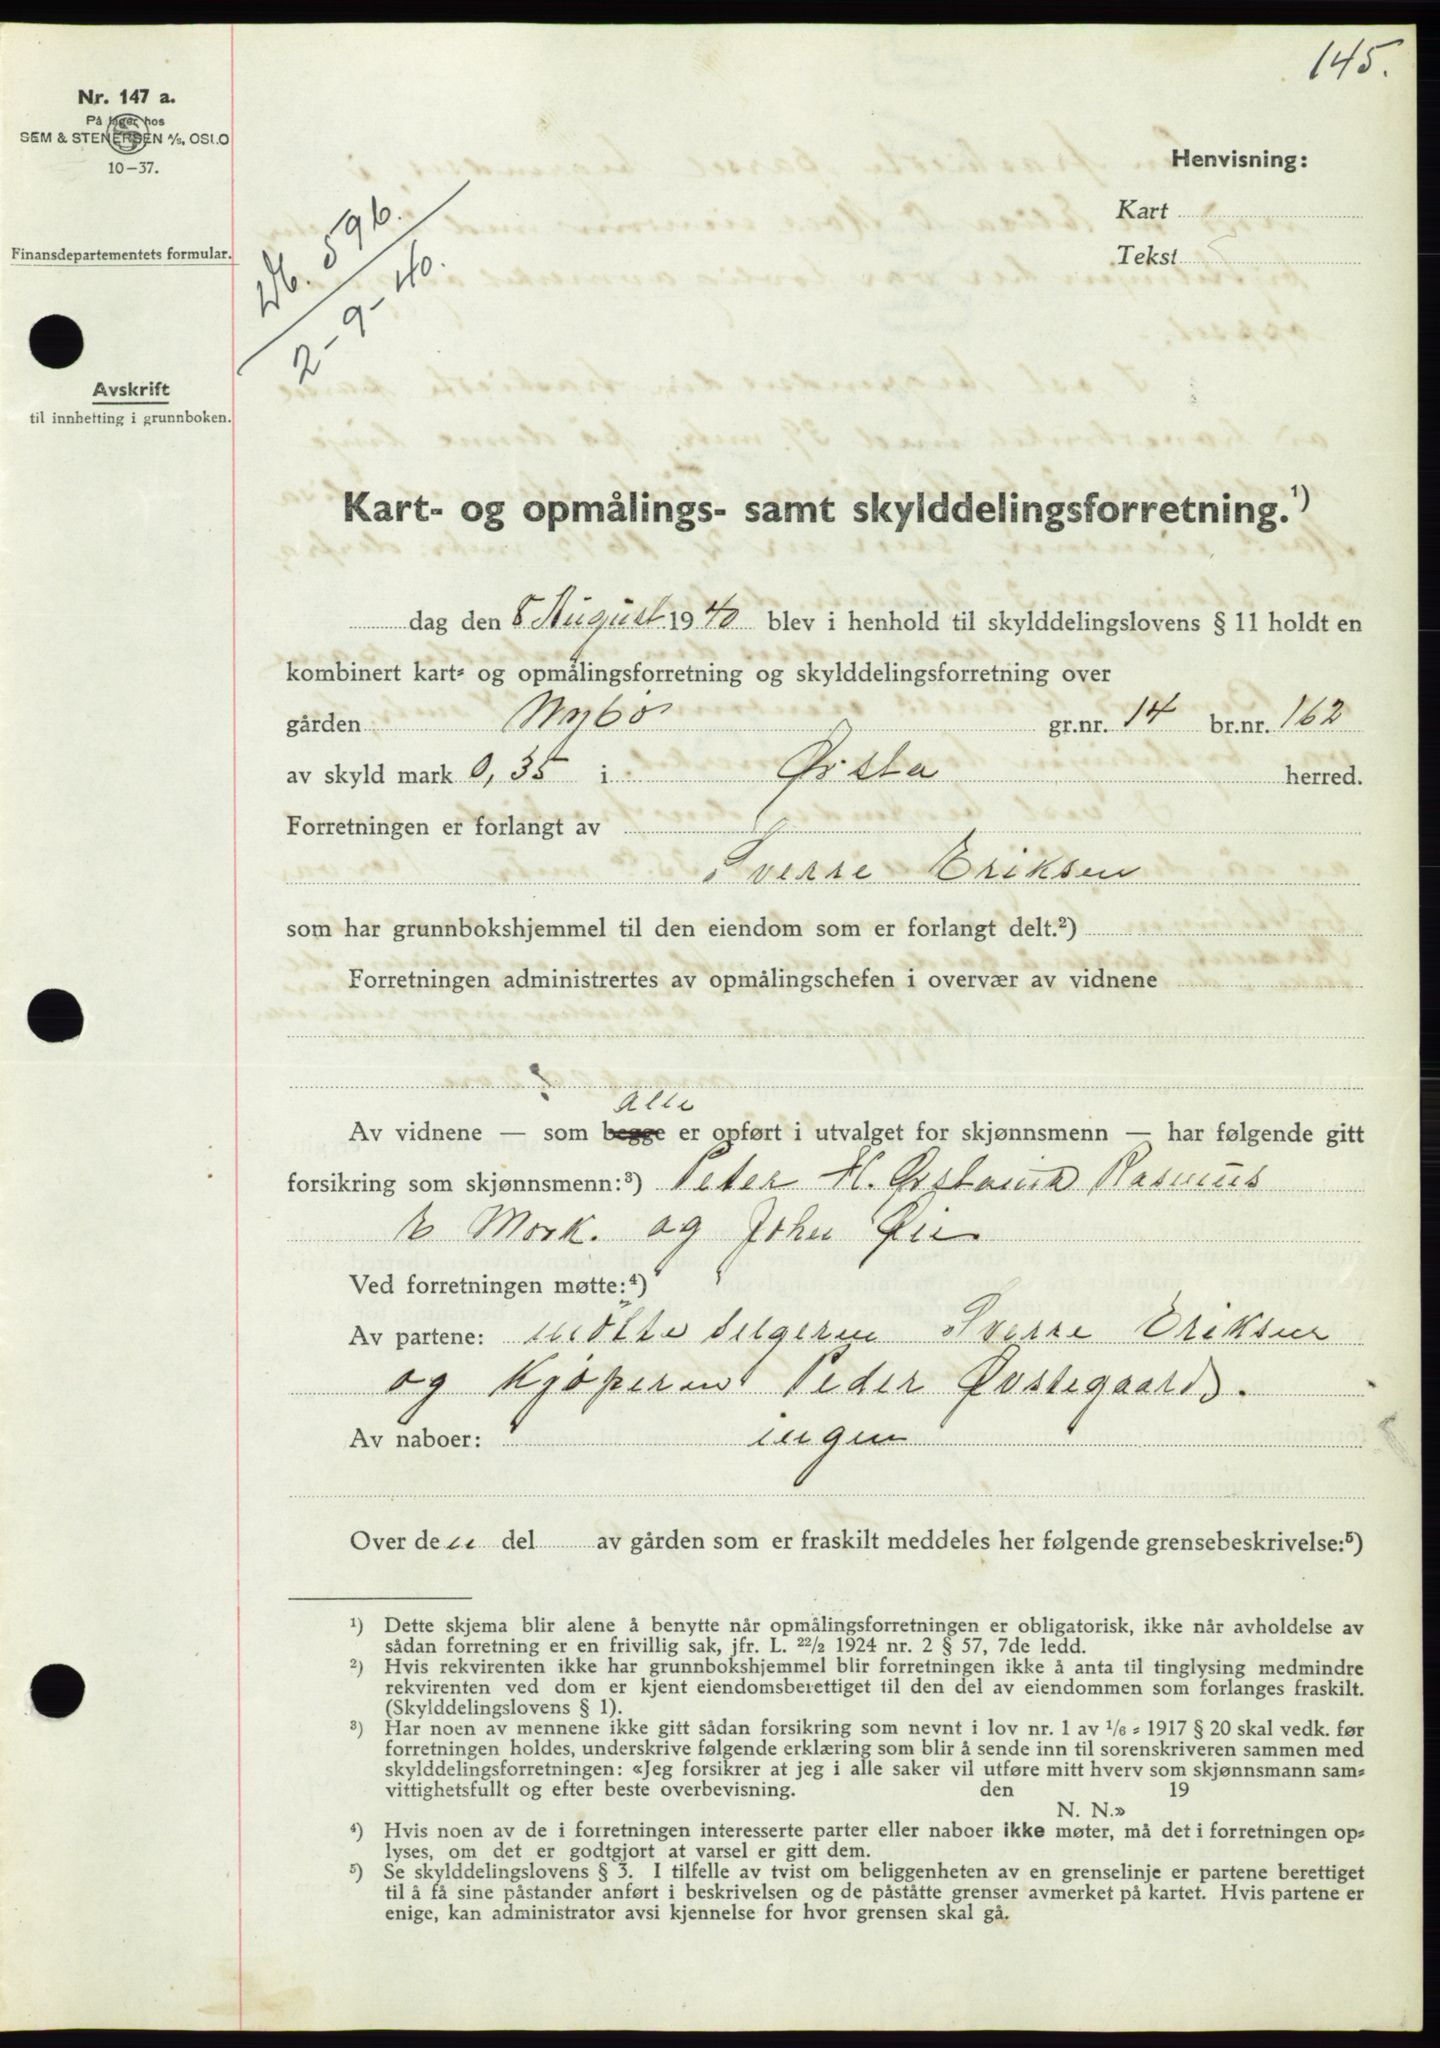 145.
Nr. 147 a.
På lager hos
SEM & STENERSEN A/S, OSLO
10-37.
Henvisning:
Kart
Tekst
Finansdepartementets formular.
Db. 596.
2-9-40.
Avskrift
til innhefting i grunnboken.
Kart- og opmålings- samt skylddelingsforretning.¹)
dag den 8 August 1940 blev i henhold til skylddelingslovens § 11 holdt en
kombinert kart- og opmålingsforretning og skylddelingsforretning over
gården Nybö gr.nr. 14 br.nr. 162
av skyld mark 0,35 i Ørsta herred.
Forretningen er forlangt av
Sverre Eriksen
som har grunnbokshjemmel til den eiendom som er forlangt delt.²)
Forretningen administrertes av opmålingschefen i overvær av vidnene
alle
Av vidnene — som begge er opført i utvalget for skjønnsmenn — har følgende gitt
forsikring som skjønnsmenn:³) Peter H. Ørstavik Rasmus
E Mork. og Johu Øie
Ved forretningen møtte:⁴)
Av partene: mötte selgeren Sverre Eriksen
og Kjöperen Peder Øvstegaard.
Av naboer: ingen
Over den del av gården som er fraskilt meddeles her følgende grensebeskrivelse:⁵)
¹) Dette skjema blir alene å benytte når opmålingsforretningen er obligatorisk, ikke når avholdelse av
sådan forretning er en frivillig sak, jfr. L. 22/2 1924 nr. 2 § 57, 7de ledd.
²) Hvis rekvirenten ikke har grunnbokshjemmel blir forretningen ikke å anta til tinglysing medmindre
rekvirenten ved dom er kjent eiendomsberettiget til den del av eiendommen som forlanges fraskilt.
(Skylddelingslovens § 1).
³) Har noen av mennene ikke gitt sådan forsikring som nevnt i lov nr. 1 av 1/6 - 1917 § 20 skal vedk. før
forretningen holdes, underskrive følgende erklæring som blir å sende inn til sorenskriveren sammen med
skylddelingsforretningen: «Jeg forsikrer at jeg i alle saker vil utføre mitt hverv som skjønnsmann sam-
vittighetsfullt og efter beste overbevisning. den 19
N. N.»
⁴) Hvis noen av de i forretningen interesserte parter eller naboer ikke møter, må det i forretningen op-
lyses, om det er godtgjort at varsel er gitt dem.
⁵) Se skylddelingslovens § 3. I tilfelle av tvist om beliggenheten av en grenselinje er partene berettiget
til å få sine påstander anført i beskrivelsen og de påståtte grenser avmerket på kartet. Hvis partene er
enige, kan administrator avsi kjennelse for hvor grensen skal gå.